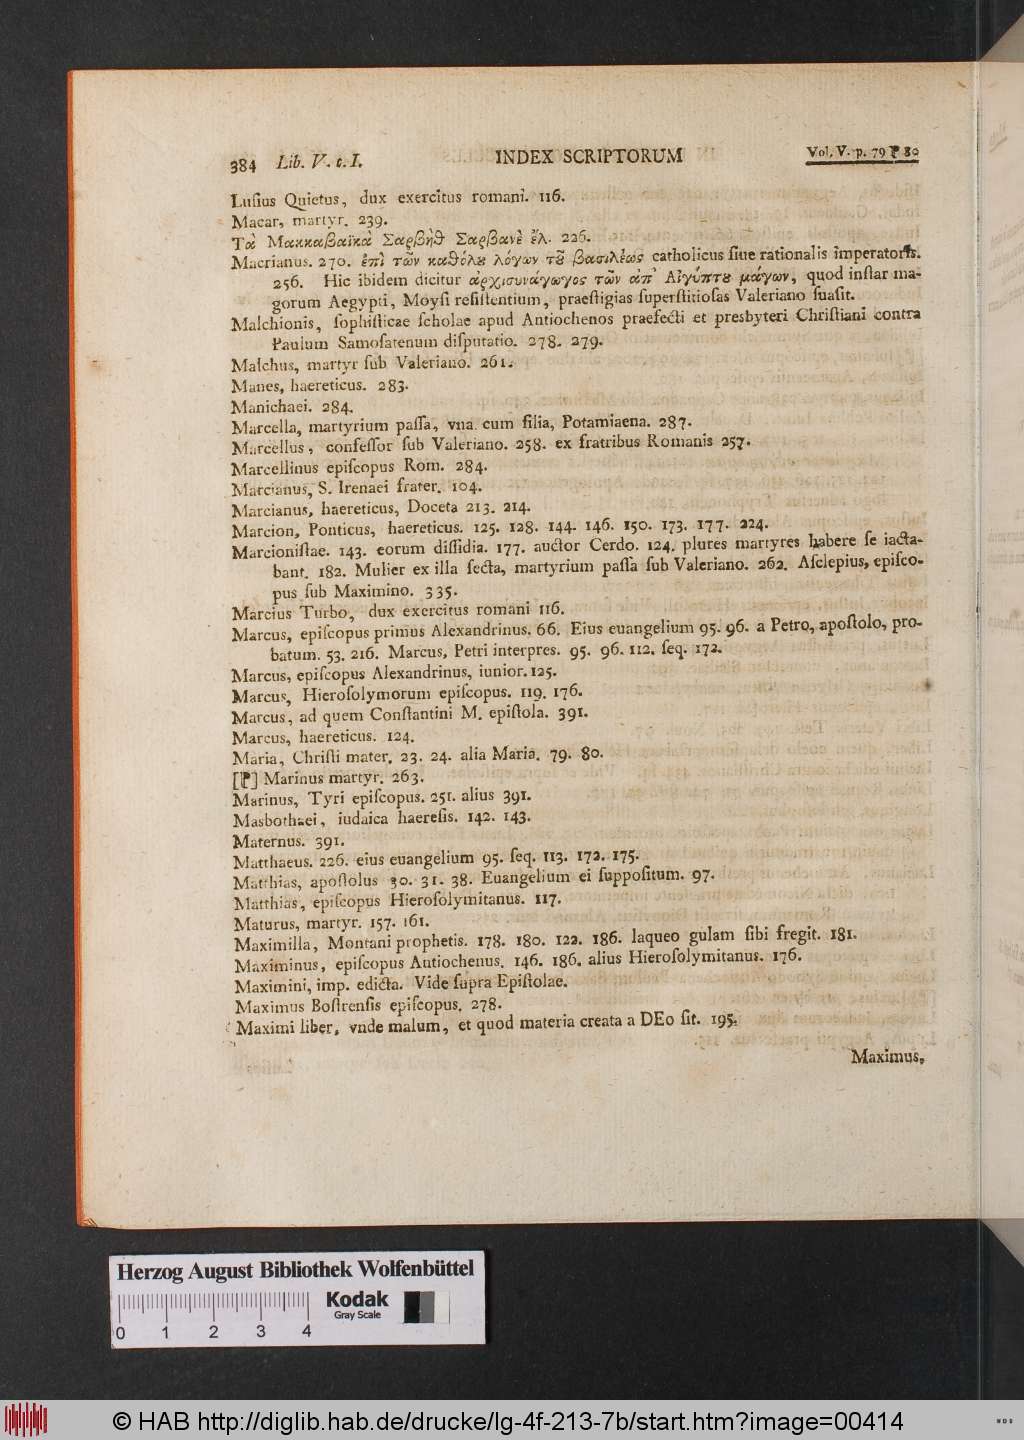 384 Lib. V. c. I. INDEX SCRIPTORUM Vol. V. p. 79 ⁋ 80
Luſius Quietus, dux exercitus romani. 116.
Macar, martyr. 239.
Τὰ Μακκαβαϊκὰ Σαρβὴθ Σαρβανὲ ἔλ. 226.
Macrianus. 270. ἐπὶ τῶν καθόλȣ λόγων τȣ͂ βασιλέως catholicus ſiue rationalis imperatoris.
256. Hic ibidem dicitur ἀρχισυνάγωγος τῶν ἀπ' Αἰγύπτȣ μάγων, quod inſtar ma-
gorum Aegypti, Moyſi reſiſtentium, praeſtigias ſuperſtitioſas Valeriano ſuaſit.
Malchionis, ſophiſticae ſcholae apud Antiochenos praefecti et presbyteri Chriſtiani contra
Paulum Samoſatenum diſputatio. 278. 279.
Malchus, martyr ſub Valeriano. 261.
Manes, haereticus. 283.
Manichaei. 284.
Marcella, martyrium paſſa, vna cum filia, Potamiaena. 287.
Marcellus, confeſſor ſub Valeriano. 258. ex fratribus Romanis 257.
Marcellinus epiſcopus Rom. 284.
Marcianus, S. Irenaei frater. 104.
Marcianus, haereticus, Doceta 213. 214.
Marcion, Ponticus, haereticus. 125. 128. 144. 146. 150. 173. 177. 224.
Marcioniſtae. 143. eorum diſſidia. 177. auctor Cerdo. 124. plures martyres habere ſe iacta-
bant. 182. Mulier ex illa ſecta, martyrium paſſa ſub Valeriano. 262. Aſclepius, epiſco-
pus ſub Maximino. 335.
Marcius Turbo, dux exercitus romani 116.
Marcus, epiſcopus primus Alexandrinus. 66. Eius euangelium 95. 96. a Petro, apoſtolo, pro-
batum. 53. 216. Marcus, Petri interpres. 95. 96. 112. ſeq. 172.
Marcus, epiſcopus Alexandrinus, iunior. 125.
Marcus, Hieroſolymorum epiſcopus. 119. 176.
Marcus, ad quem Conſtantini M. epiſtola. 391.
Marcus, haereticus. 124.
Maria, Chriſti mater. 23. 24. alia Maria. 79. 80.
[⁋] Marinus martyr. 263.
Marinus, Tyri epiſcopus. 251. alius 391.
Masbothaei, iudaica haereſis. 142. 143.
Maternus. 391.
Matthaeus. 226. eius euangelium 95. ſeq. 113. 172. 175.
Matthias, apoſtolus 30. 31. 38. Euangelium ei ſuppoſitum. 97.
Matthias, epiſcopus Hieroſolymitanus. 117.
Maturus, martyr. 157. 161.
Maximilla, Montani prophetis. 178. 180. 122. 186. laqueo gulam ſibi fregit. 181.
Maximinus, epiſcopus Antiochenus. 146. 186. alius Hieroſolymitanus. 176.
Maximini, imp. edicta. Vide ſupra Epiſtolae.
Maximus Boſtrenſis epiſcopus. 278.
Maximi liber, vnde malum, et quod materia creata a DEo ſit. 195.
Maximus,
Herzog August Bibliothek Wolfenbüttel
Kodak
Gray Scale
0 1 2 3 4
© HAB http://diglib.hab.de/drucke/lg-4f-213-7b/start.htm?image=00414